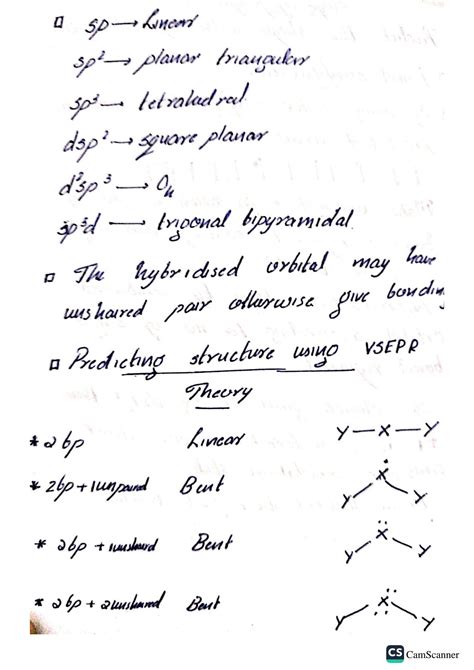 □ sp → Linear
sp² → planar triangular
sp³ → tetrahedral
dsp² → square planar
d²sp³ → Oh
sp³d → trigonal bipyramidal
□ The hybridised orbital may have
unshared pair otherwise give bonding
□ Predicting structure using VSEPR
Theory
* 2bp Linear Y—X—Y
* 2bp + 1unpaired Bent X Y Y
* 2bp + 1unshared Bent X Y Y
* 2bp + 2unshared Bent X Y Y
CS CamScanner